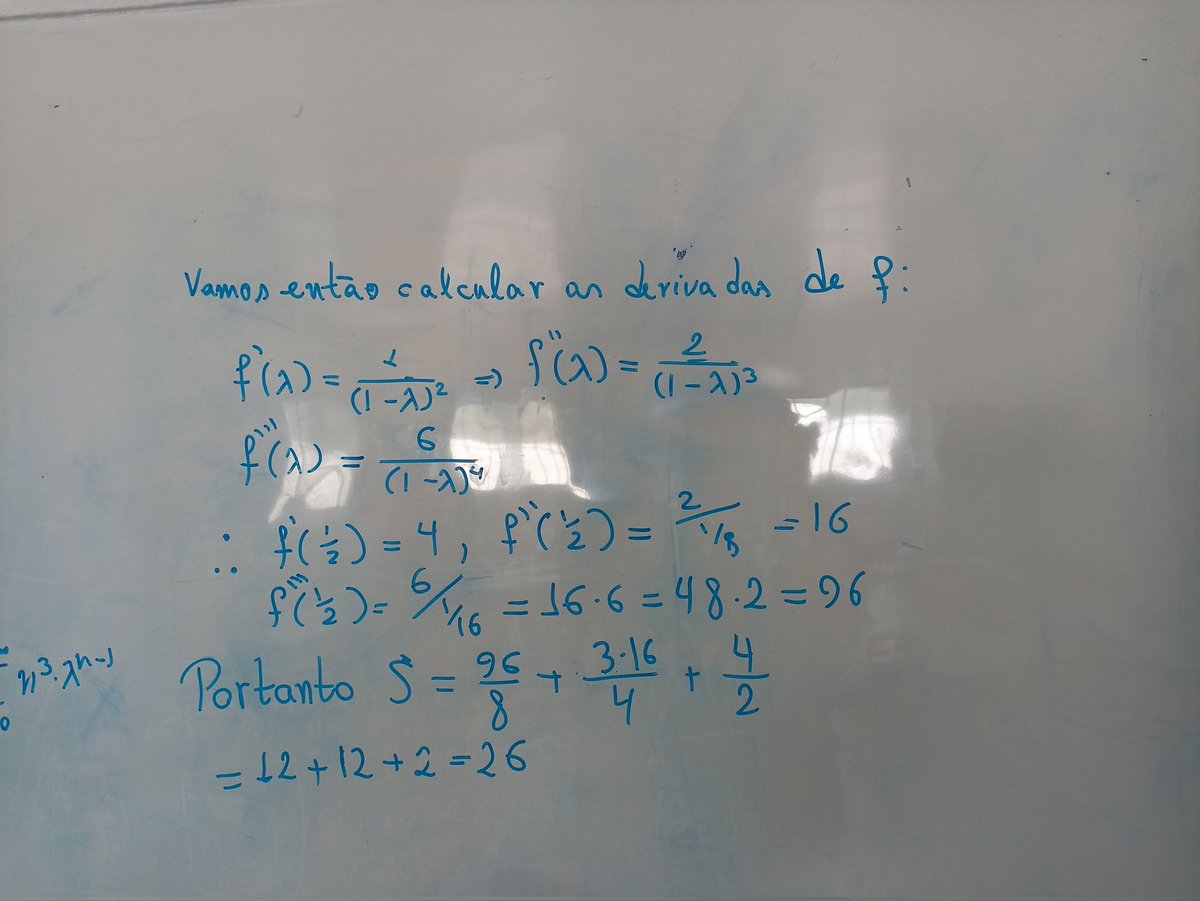 Vamos então calcular as derivadas de f:
f'(λ) = 1/(1-λ)² => f''(λ) = 2/(1-λ)³
f'''(λ) = 6/(1-λ)⁴
∴ f'(1/2) = 4, f''(1/2) = 2/1/8 = 16
f'''(1/2) = 6/1/16 = 16·6 = 48·2 = 96
n³·λⁿ⁻¹
Portanto S = 96/8 + 3·16/4 + 4/2
= 12 + 12 + 2 = 26